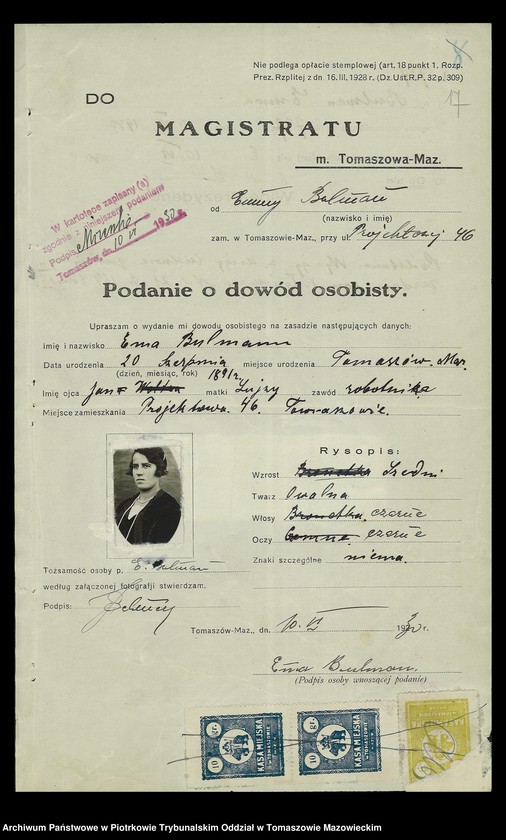 Nie podlega opłacie stemplowej (art. 18 punkt 1. Rozp.
Prez. Rzplitej z dn. 16. III. 1928 r. (Dz. Ust. R. P. 32 p. 309)
17
DO
MAGISTRATU
m. Tomaszowa-Maz.
W kartotece zapisany (a)
zgodnie z niniejszem podaniem
Podpis
Tomaszów, dn. 10 VI 1932 r.
od Emmy Bulman
(nazwisko i imię)
zam. w Tomaszowie-Maz., przy ul. Projektowej 46
Podanie o dowód osobisty.
Upraszam o wydanie mi dowodu osobistego na zasadzie następujących danych:
imię i nazwisko Ema Bulmann
Data urodzenia 20 Sierpnia miejsce urodzenia Tomaszów. Maz.
(dzień, miesiąc, rok)
Imię ojca Jan matki Lujzy zawód robotnika
Miejsce zamieszkania Projektowa. 46. Tomaszowie.
Rysopis:
Wzrost Średni
Twarz Owalna
Włosy Brunetka, czarne
Oczy Ciemne czarne
Znaki szczególne niema.
Tożsamość osoby p. E. Bulman
według załączonej fotografji stwierdzam.
Podpis:
Tomaszów-Maz., dn. 10. VI 1932 r.
Ema Bulman.
(Podpis osoby wnoszącej podanie)
10 gr.
KASA MIEJSKA
W TOMASZOWIE
10 gr.
KASA MIEJSKA
W TOMASZOWIE
Archiwum Państwowe w Piotrkowie Trybunalskim Oddział w Tomaszowie Mazowieckim